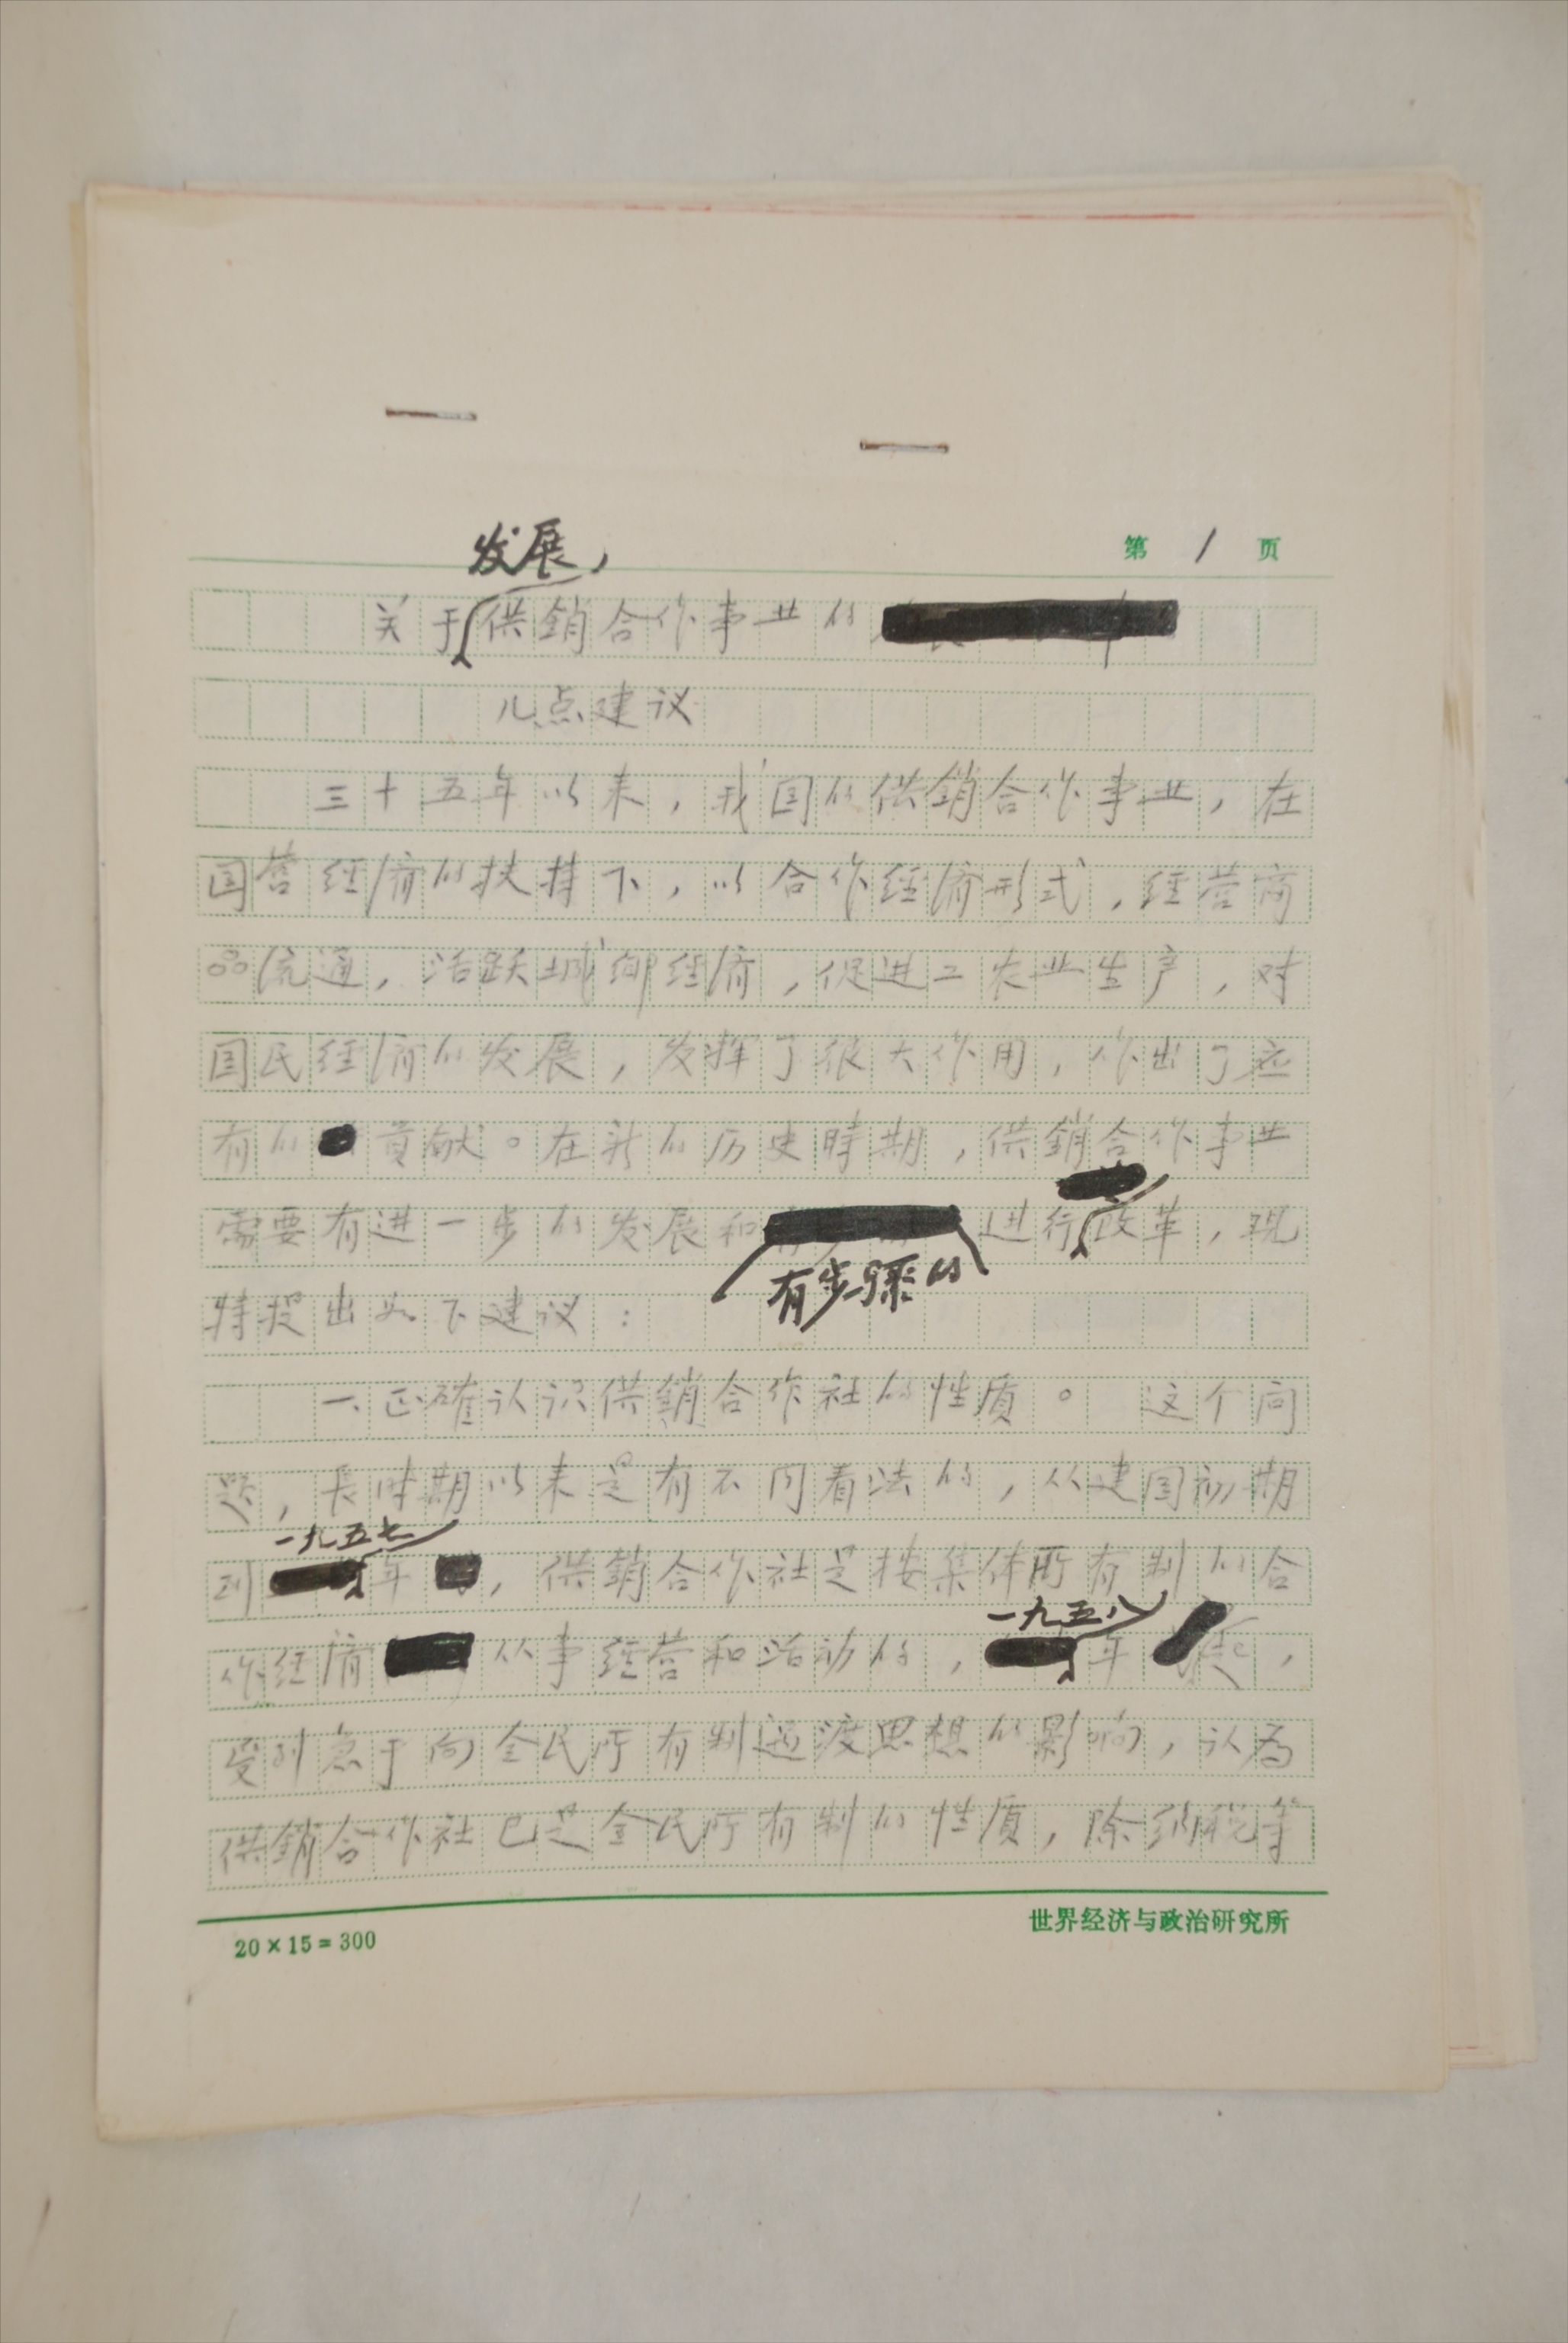 第1页
发展,
关于供銷合作事业的
几点建议
三十五年以来,我国的供銷合作事业,在
国营经济的扶持下,以合作经济形式,经营商
品流通,活跃城乡经济,促进工农业生产,对
国民经济的发展,发挥了很大作用,作出了应
有的贡献。在新的历史時期,供銷合作事业
需要有进一步的发展和进行改革,现
有步骤的
特提出如下建议:
一、正確认识供銷合作社的性质。 这个问
题,長时期以来是有不同看法的,从建国初期
一九五七
到年,供銷合作社是按集体所有制的合
一九五八
作经济从事经营和活动的,年起,
受到急于向全民所有制过渡思想的影响,认为
供銷合作社已是全民所有制的性质,除纳税等
20×15=300
世界经济与政治研究所